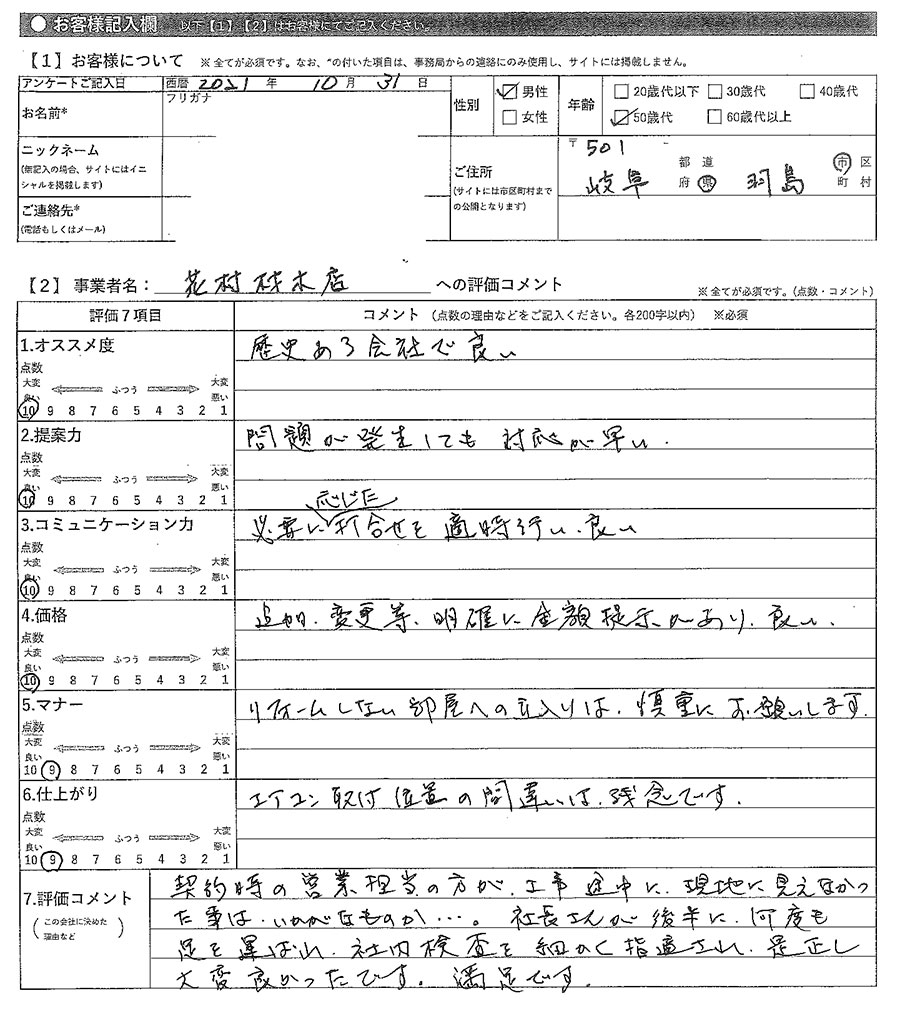 ● お客様記入欄 以下【1】【2】はお客様にてご記入ください。
【1】お客様について ※全てが必須です。なお、*の付いた項目は、事務局からの連絡にのみ使用し、サイトには掲載しません。
アンケートご記入日 西暦 2021 年 10 月 31 日
フリガナ
お名前*
性別 ☑男性 □女性
年齢 □20歳代以下 □30歳代 □40歳代
☑50歳代 □60歳代以上
ニックネーム
(無記入の場合、サイトにはイニ
シャルを掲載します)
ご連絡先*
(電話もしくはメール)
ご住所
(サイトには市区町村まで
の公開となります)
〒501 -
岐阜 都道府県 羽島 市区町村
【2】事業者名: 花村材木店 への評価コメント
※全てが必須です。(点数・コメント)
評価7項目 コメント (点数の理由などをご記入ください。各200字以内) ※必須
1.オススメ度 歴史ある会社で良い
点数
大変 ふつう 大変
良い 悪い
10 9 8 7 6 5 4 3 2 1
2.提案力 問題が発生しても対応が早い.
点数
大変 ふつう 大変
良い 悪い
10 9 8 7 6 5 4 3 2 1
応じた
3.コミュニケーション力 必要に打合せを適時行い、良い
点数
大変 ふつう 大変
良い 悪い
10 9 8 7 6 5 4 3 2 1
4.価格 追加、変更等、明確に金額提示があり、良い.
点数
大変 ふつう 大変
良い 悪い
10 9 8 7 6 5 4 3 2 1
5.マナー リフォームしない部屋への立入りは、慎重にお願いします.
点数
大変 ふつう 大変
良い 悪い
10 9 8 7 6 5 4 3 2 1
6.仕上がり エアコン取付位置の間違いは、残念です.
点数
大変 ふつう 大変
良い 悪い
10 9 8 7 6 5 4 3 2 1
7.評価コメント
(この会社に決めた
理由など)
契約時の営業担当の方が、工事途中に、現地に見えなかっ
た事は、いかがなものか…。社長さんが後半に、何度も
足を運ばれ、社内検査を細かく指適され、是正し
大変良かったです。満足です.